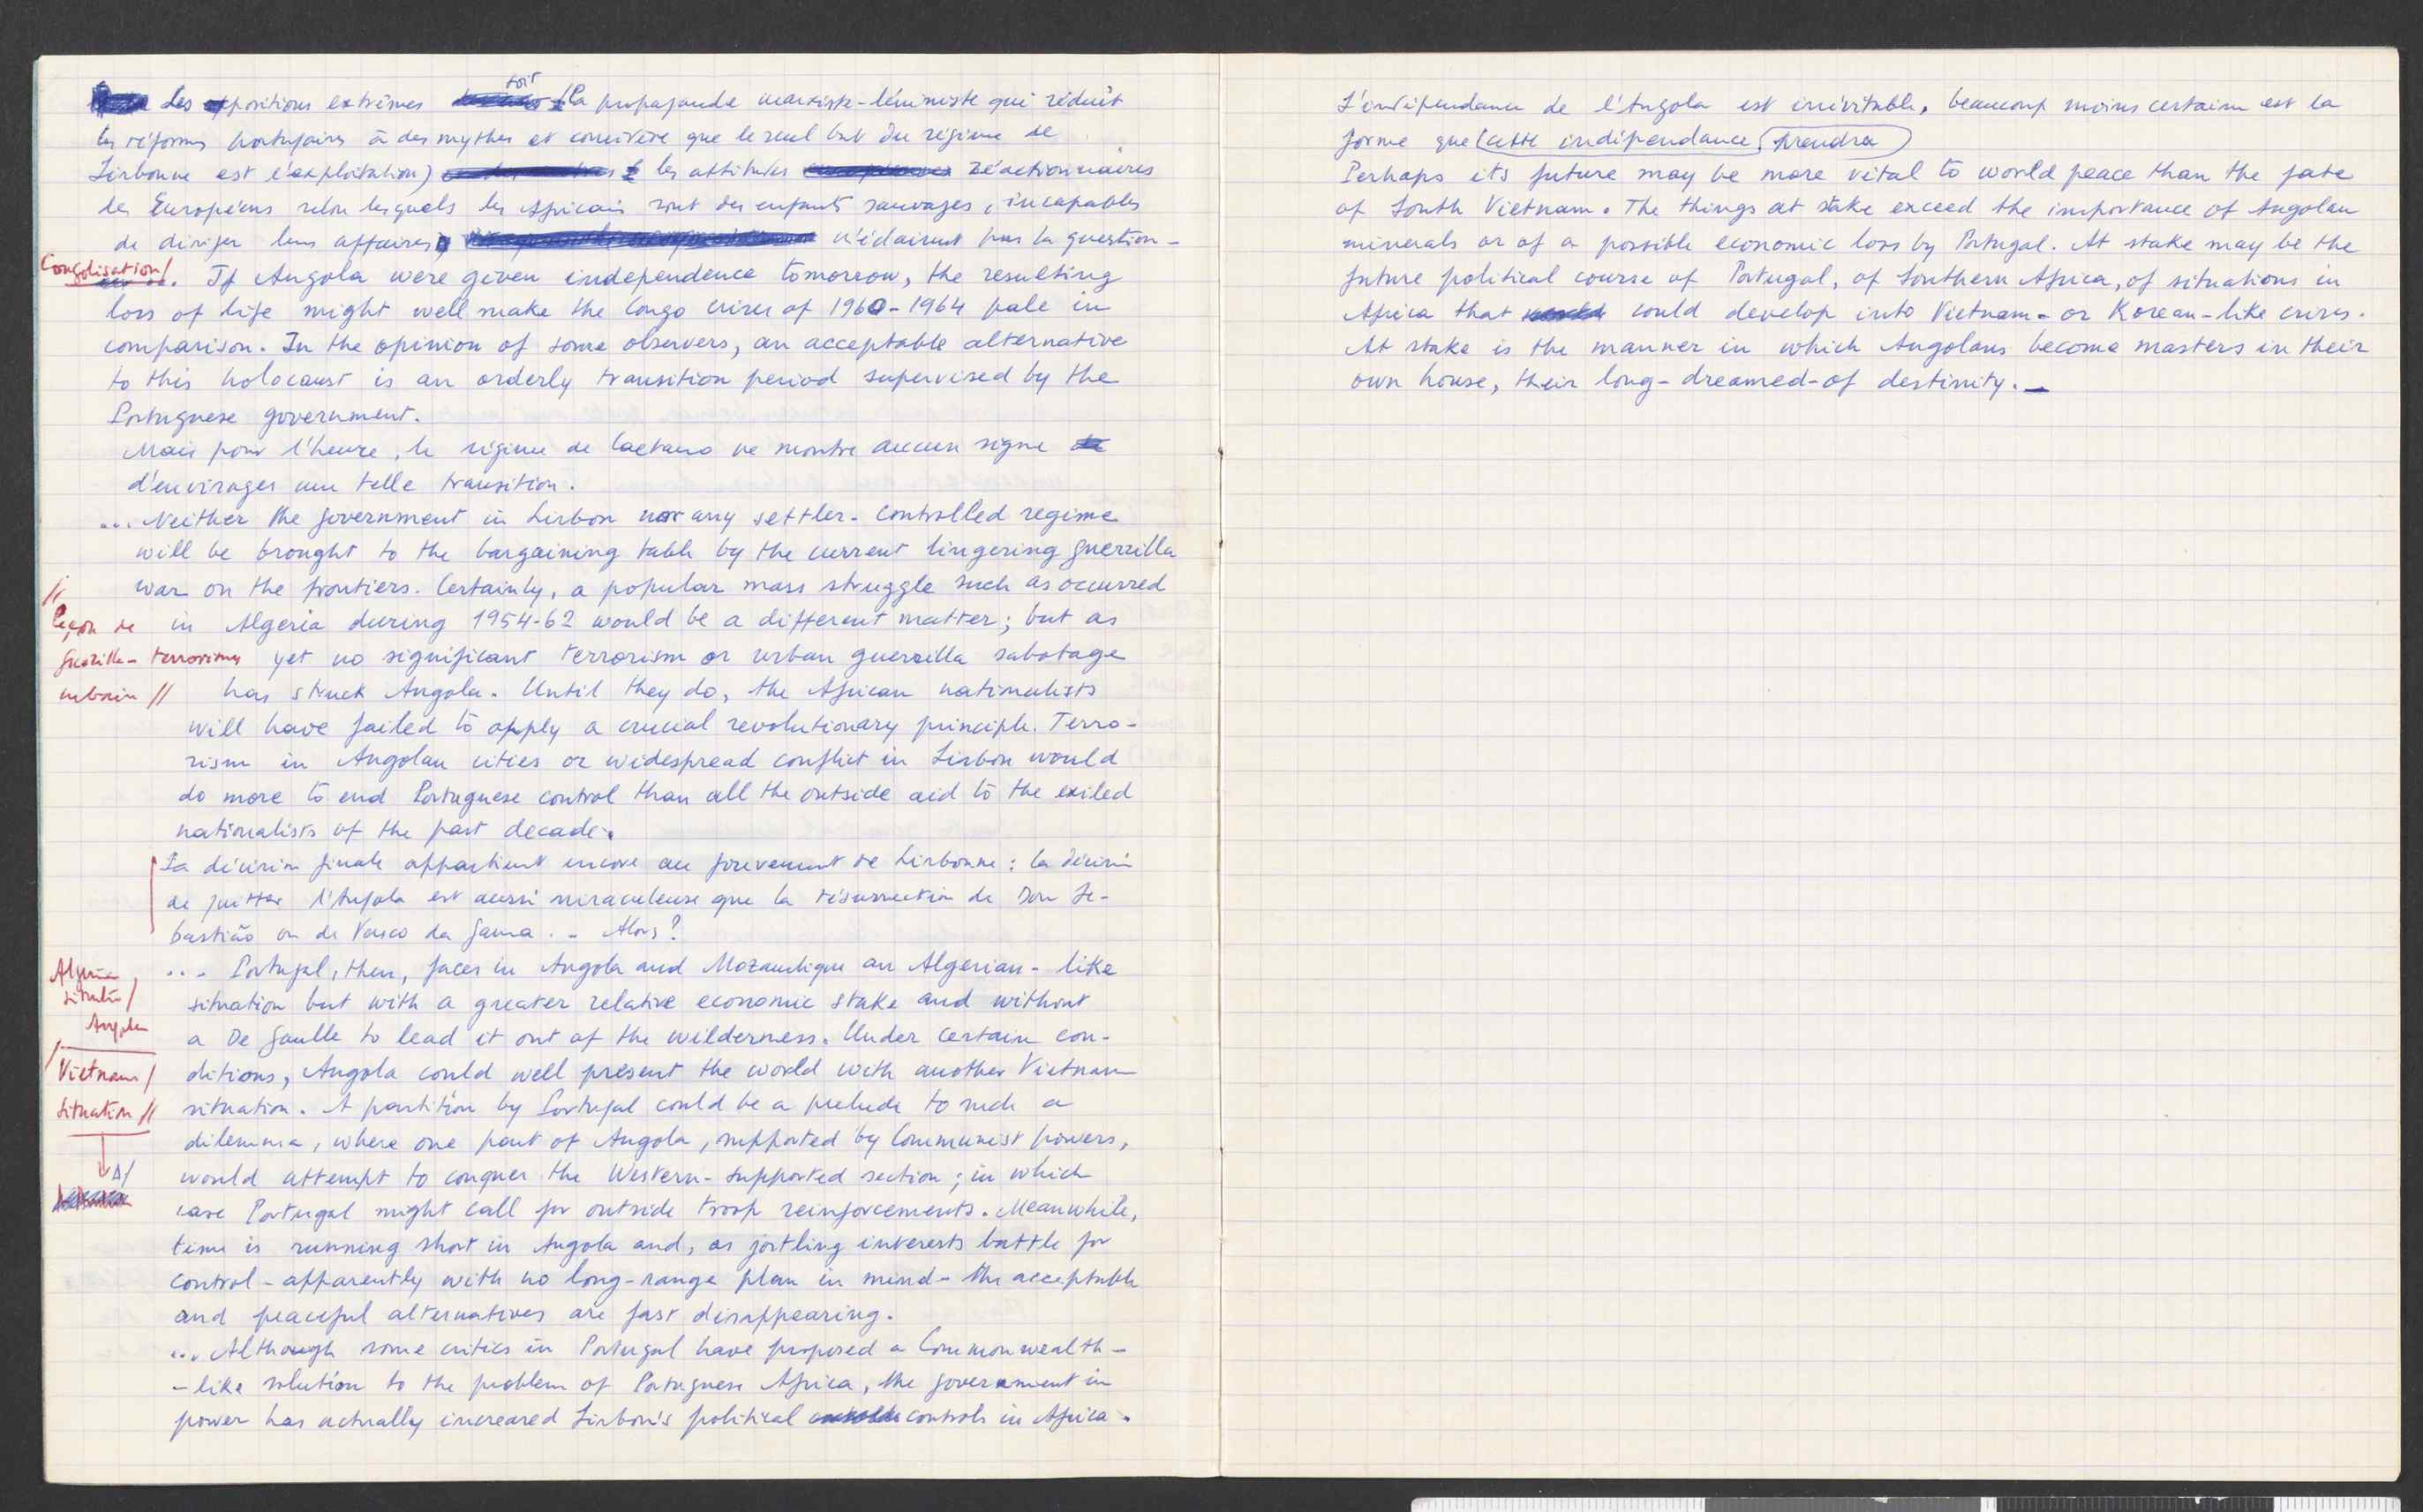 Les oppositions extrêmes soit (la propagande marxiste-léniniste qui réduit
les réformes portugaises à des mythes et considère que le seul but du régime de
Lisbonne est l'exploitation) les attitudes réactionnaires
des Européens selon lesquels les Africains sont des enfants sauvages, incapables
de diriger leurs affaires, n'éclairent pas la question -
Congolisation/
. If Angola were given independence tomorrow, the resulting
loss of life might well make the Congo crises of 1960-1964 pale in
comparison. In the opinion of some observers, an acceptable alternative
to this holocaust is an orderly transition period supervised by the
Portuguese government.
Mais pour l'heure, le régime de Caetano ne montre aucun signe
d'envisager une telle transition.
... Neither the government in Lisbon nor any settler-controlled regime
will be brought to the bargaining table by the current lingering guerrilla
war on the frontiers. Certainly, a popular mass struggle such as occurred
//
Leçon de
guérilla - terrorisme
urbain //
in Algeria during 1954-62 would be a different matter; but as
yet no significant terrorism or urban guerrilla sabotage
has struck Angola. Until they do, the African nationalists
will have failed to apply a crucial revolutionary principle. Terro-
rism in Angolan cities or widespread conflict in Lisbon would
do more to end Portuguese control than all the outside aid to the exiled
nationalists of the past decade.
La décision finale appartient encore au gouvernement de Lisbonne: la décision
de quitter l'Angola est aussi miraculeuse que la résurrection de Don Se-
bastião ou de Vasco da Gama. - Alors?
Algeria
situation/
Angola
/Vietnam/
Situation //
Δ/
... Portugal, then, faces in Angola and Mozambique an Algerian-like
situation but with a greater relative economic stake and without
a De Gaulle to lead it out of the wilderness. Under certain con-
ditions, Angola could well present the world with another Vietnam
situation. A partition by Portugal could be a prelude to such a
dilemma, where one part of Angola, supported by Communist powers,
would attempt to conquer the Western-supported section; in which
case Portugal might call for outside troop reinforcements. Meanwhile,
time is running short in Angola and, as jostling interests battle for
control - apparently with no long-range plan in mind - the acceptable
and peaceful alternatives are fast disappearing.
... Although some critics in Portugal have proposed a Commonwealth-
-like solution to the problem of Portuguese Africa, the government in
power has actually increased Lisbon's political controls in Africa.
L'indépendance de l'Angola est inévitable, beaucoup moins certaine est la
forme que (cette indépendance, prendra)
Perhaps its future may be more vital to world peace than the fate
of South Vietnam. The things at stake exceed the importance of Angolan
minerals or of a possible economic loss by Portugal. At stake may be the
future political course of Portugal, of Southern Africa, of situations in
Africa that could develop into Vietnam- or Korean-like crises.
At stake is the manner in which Angolans become masters in their
own house, their long-dreamed-of destinity. -